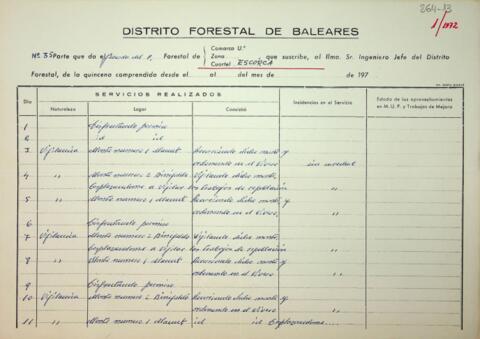 264-13
1/1972
DISTRITO FORESTAL DE BALEARES
Nº 35 Parte que da el Guarda del E. Forestal de Comarca U.ª
Zona que suscribe, al Ilmo. Sr. Ingeniero Jefe del Distrito
Cuartel ESCORCA
Forestal, de la quincena comprendida desde el al del mes de de 197
SERVICIOS REALIZADOS
Día Naturaleza Lugar Consistió Incidencias en el Servicio Estado de los aprovechamientos en M.U.P. y Trabajos de Mejora
1 Disfrutando permiso
2 id id
3 Vigilancia Monte numero 1 Manut Recorriendo dicho monte y
ordenante en el Vivero sin novedad
4 " Monte numero 2 Binifaldo Vigilando dicho monte,
desplazandome a Vigilar los trabajos de repoblación "
5 " Monte numero 1 Manut Recorriendo dicho monte y
ordenante en el Vivero, "
6 Disfrutando permiso
7 Vigilancia Monte numero 2 Binifaldo Vigilando dicho monte,
desplazandome a Vigilar los trabajos de repoblación "
8 " Monte numero 1 Manut Recorriendo dicho monte y
ordenante en el Vivero "
9 Disfrutando permiso
10 Vigilancia Monte numero 2 Binifaldo Recorriendo dicho monte y
ordenante en el Vivero "
11 " Monte numero 1 Manut id id Desplazandome "